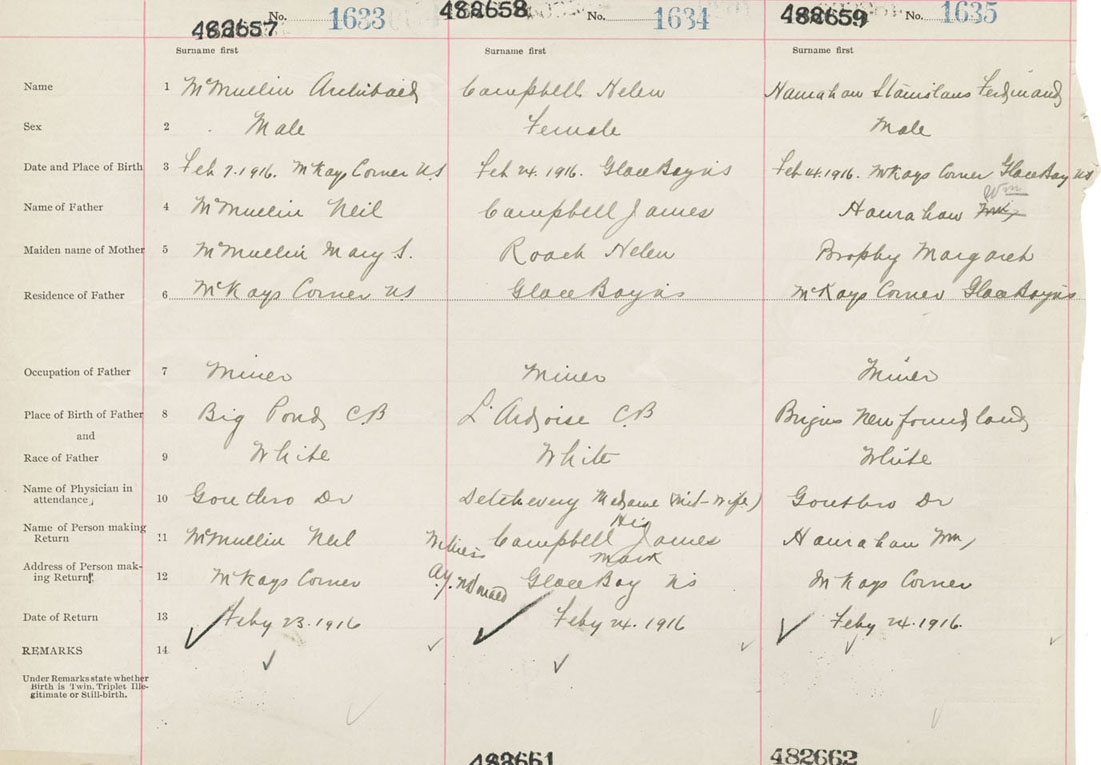 482657 No. 1633 482658 No. 1634 482659 No. 1635
Surname first Surname first Surname first
Name 1 McMullin Archibald Campbell Helen Hanrahan Stanislaus Ferdinand
Sex 2 Male Female Male
Date and Place of Birth 3 Feb 7. 1916. McKays Corner NS Feb 24. 1916. Glace Bay NS Feb 4. 1916. McKays Corner Glace Bay NS
Wm
Name of Father 4 McMullin Neil Campbell James Hanrahan
Maiden name of Mother 5 McMullin Mary S. Roach Helen Brophy Margaret
Residence of Father 6 McKays Corner NS Glace Bay NS McKays Corner Glace Bay NS
Occupation of Father 7 Miner Miner Miner
Place of Birth of Father 8 Big Pond CB L'Ardoise CB Brigus Newfoundland
and
Race of Father 9 White White White
Name of Physician in attendance, 10 Gouthro Dr Detcheverry Madame (Mid-wife) Gouthro Dr
His
Name of Person making Return 11 McMullin Neil Witness Campbell James Hanrahan Wm,
Mark
Address of Person making Return 12 McKays Corner A.J. McDonald Glace Bay NS McKays Corner
Date of Return 13 Feby 23. 1916 Feby 24. 1916 Feby 24. 1916.
REMARKS 14
Under Remarks state whether
Birth is Twin, Triplet Ille-
gitimate or Still-birth.
482661 482662